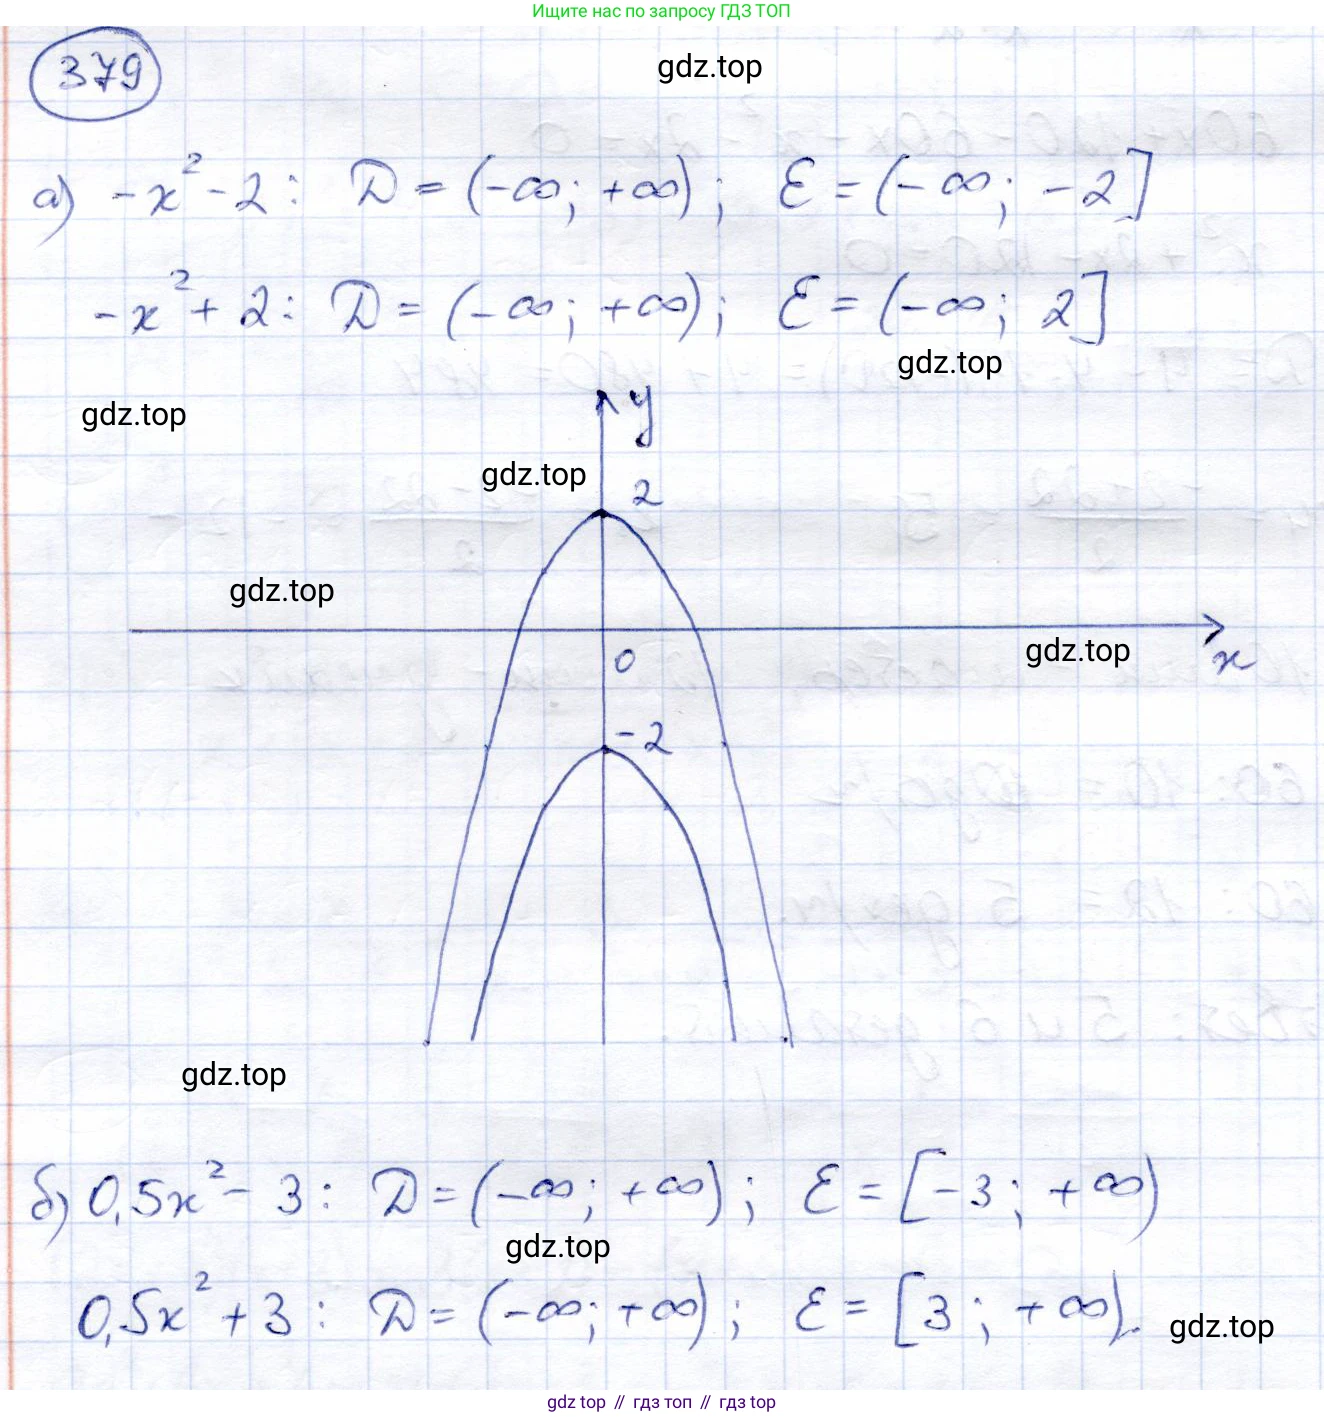 Ищите нас по запросу ГДЗ ТОП
379
gdz.top
а) -x² - 2 : D = (-∞; +∞); E = (-∞; -2]
-x² + 2 : D = (-∞; +∞); E = (-∞; 2]
gdz.top
y
gdz.top
gdz.top
2
gdz.top
gdz.top
x
0
-2
gdz.top
б) 0,5x² - 3 : D = (-∞; +∞); E = [-3; +∞)
gdz.top
0,5x² + 3 : D = (-∞; +∞); E = [3; +∞).
gdz.top
gdz top // гдз топ // gdz top